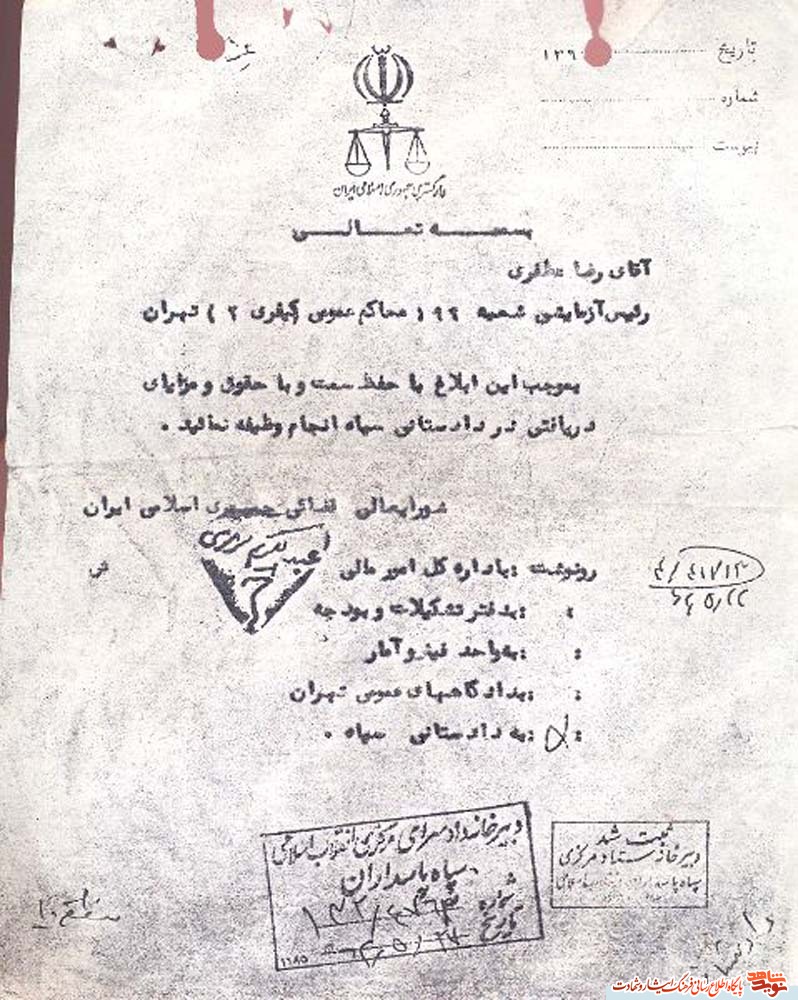 تاریخ ۱۳۹
شماره
پیوست
دادگستری جمهوری اسلامی ایران
بسمه تعالی
آقای رضا مظفری
رئیس آزمایشی شعبه ۹۲ ( محاکم عمومی (کیفری ۲ ) تهران
بموجب این ابلاغ با حفظ سمت و با حقوق و مزایای
دریافتی در دادستانی سپاه انجام وظیفه نمائید .
شورایعالی قضائی جمهوری اسلامی ایران
رونوشت : باداره کل امور مالی
: : بدفتر تشکیلات و بودجه
: : بواحد فیش و آمار
: : بدادگاههای عمومی تهران
: : به دادستانی سپاه .
ثبت شد
دبیرخانه ستاد مرکزی
سپاه پاسداران انقلاب اسلامی
دبیرخانه دادسرای مرکزی انقلاب اسلامی
سپاه پاسداران
شماره
تاریخ
۱۱۸۵
نوید شاهد
پایگاه اطلاع رسانی فرهنگ ایثار و شهادت